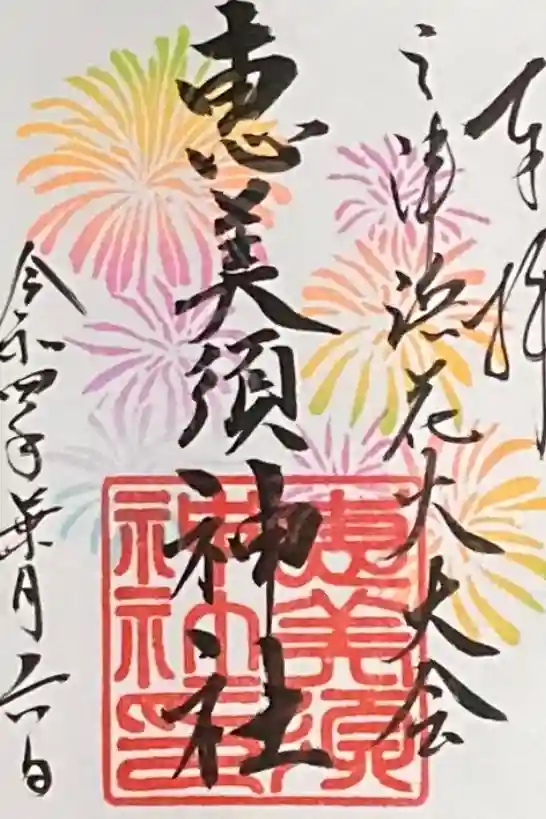 奉拝
三津浜花火大会
恵美須神社
恵美須
神社
神社印
令和四年葉月六日